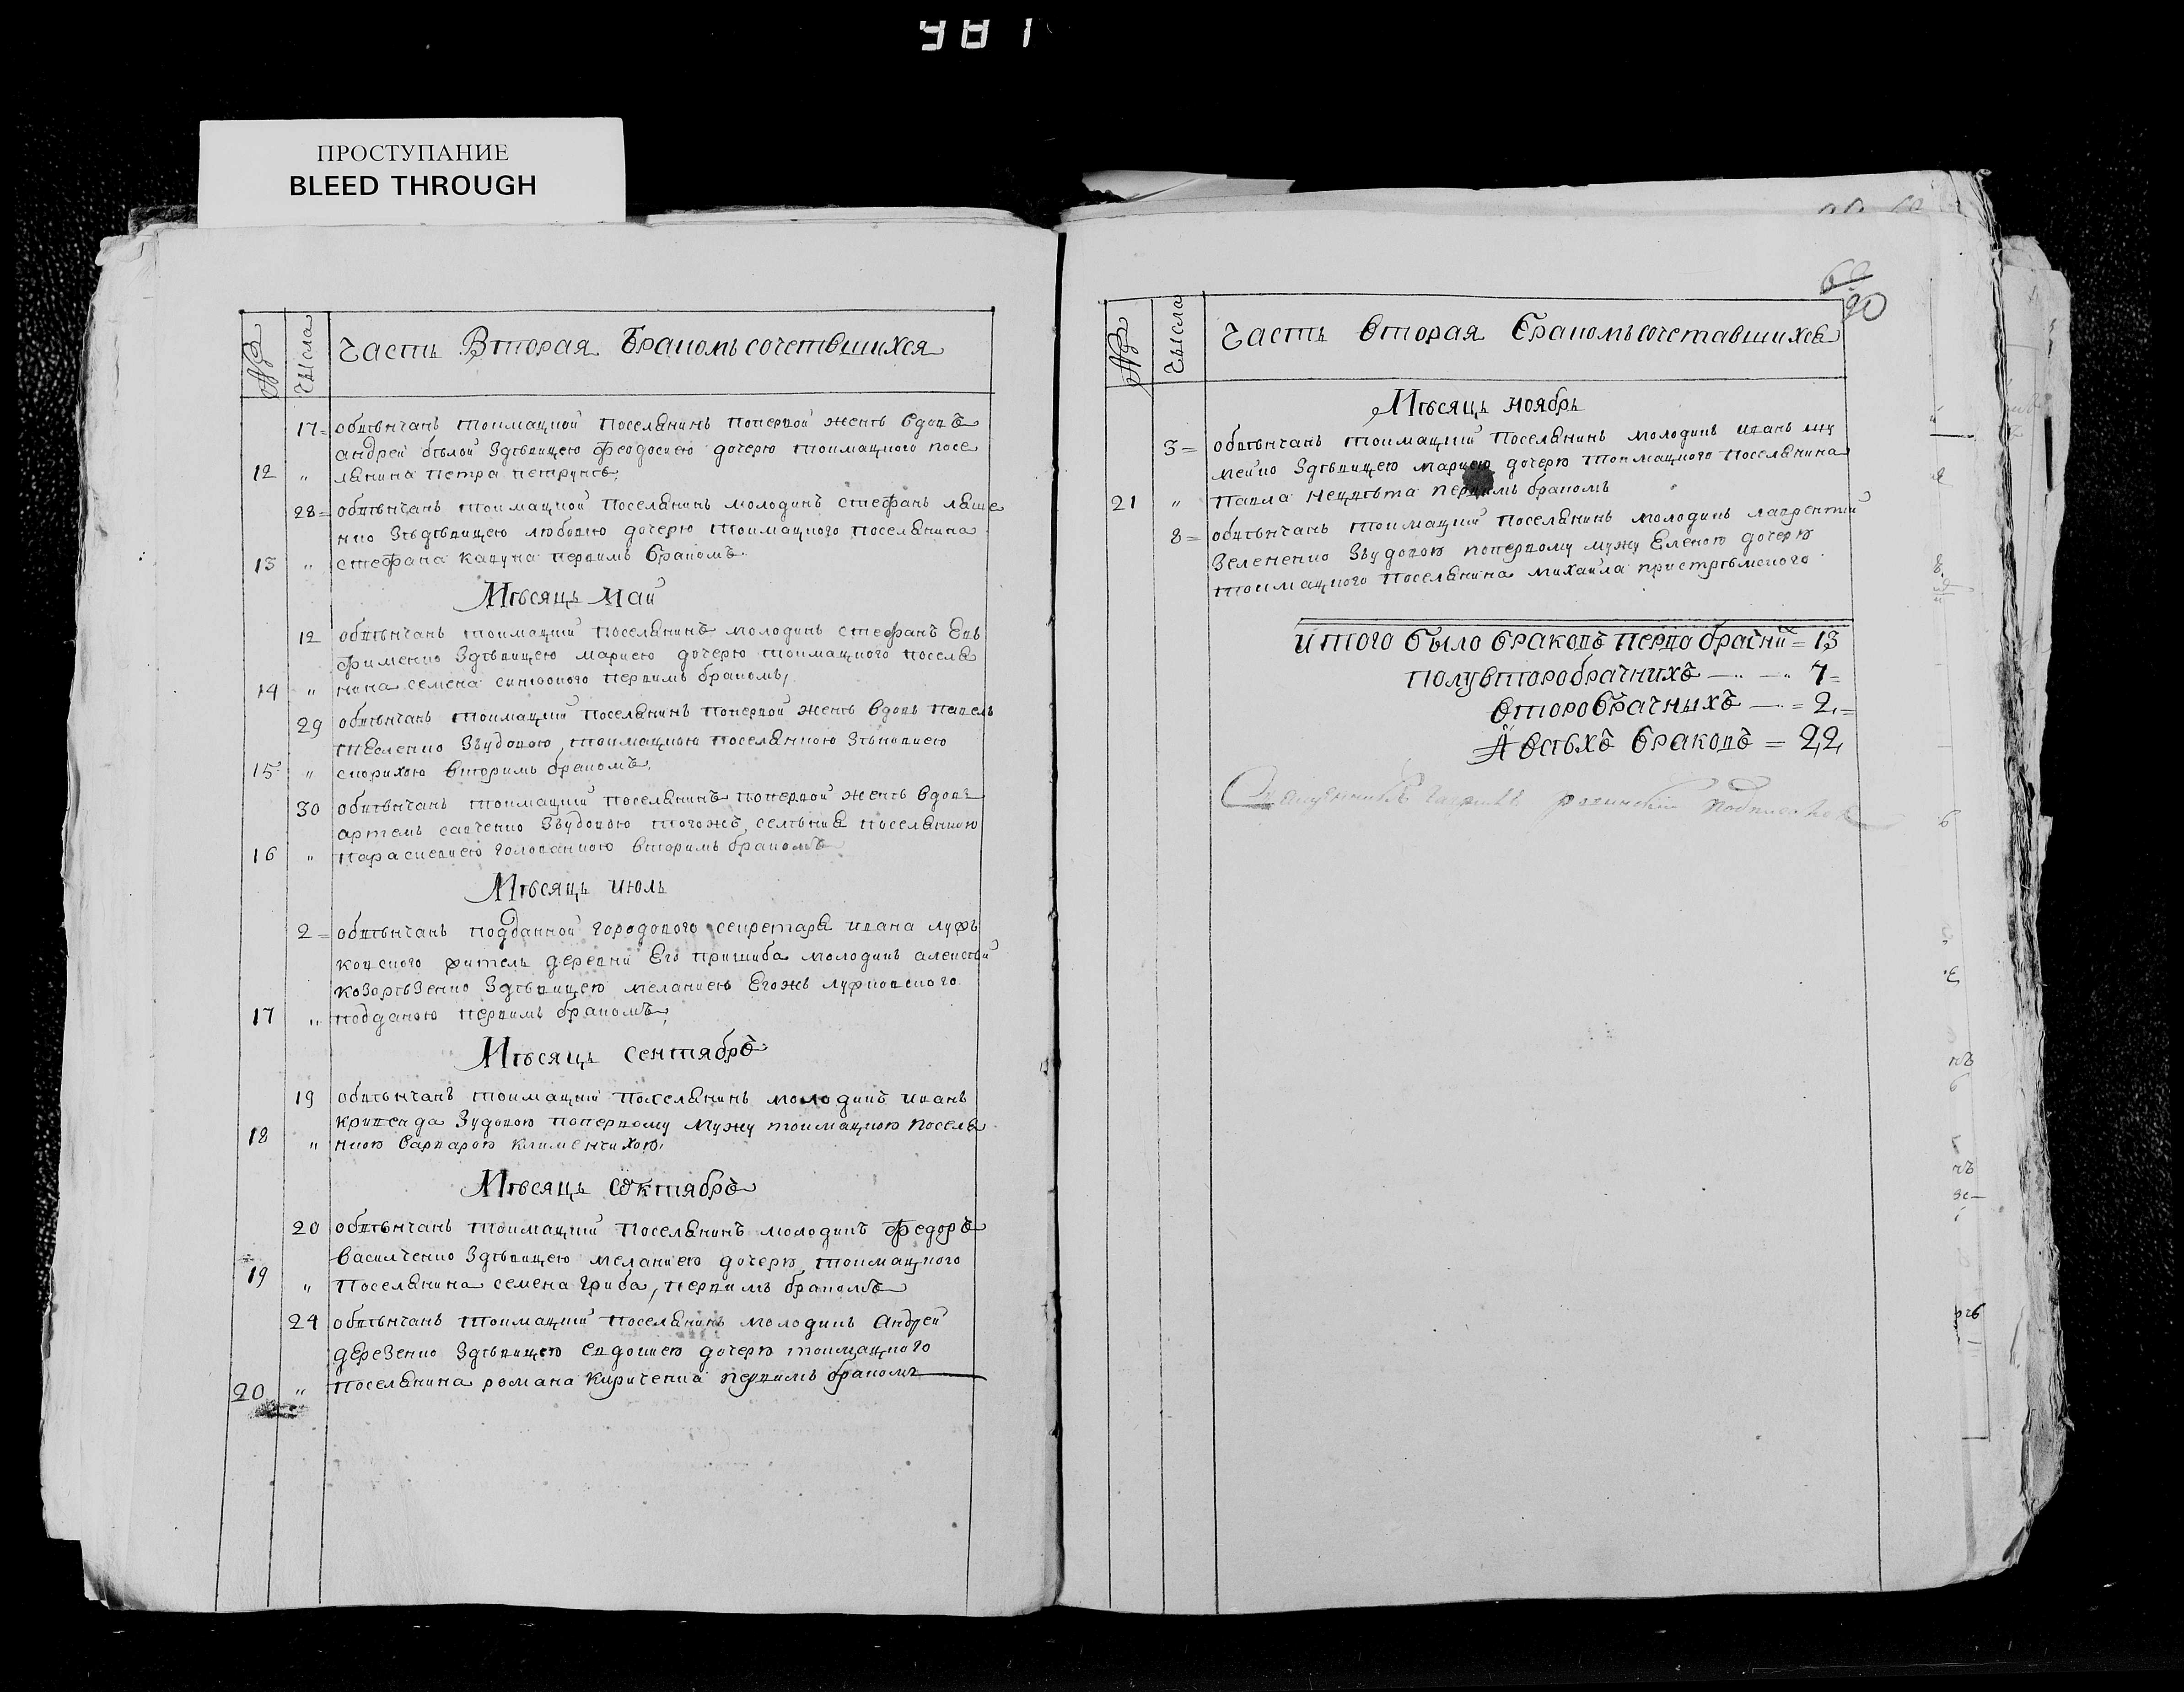 381
ПРОСТУПАНИЕ
BLEED THROUGH
№ Числа Часть Вторая Бракомъ сочетвшихся
17 = обвѣнчанъ токмацкой поселянинъ попервой женѣ вдовъ
андрей бѣлой Здѣвицею феодосиею дочерю токмацкого посе
12 " лянина петра
28 = обвѣнчанъ токмацкой поселянинъ молодикъ стефанъ ляше
нко Зъдѣвицею любовию дочерю токмацкого поселянина
13 " стефана кавуна первимъ бракомъ
Мѣсяцъ Маи
12 обвѣнчанъ токмацкий поселянинъ молодикъ стефанъ Евъ
фименко Здѣвицею мариею дочерю токмацкого поселя
14 " нина семена первимъ бракомъ,
29 обвѣнчанъ токмацкий поселянинъ попервой женѣ вдовъ павелъ
Звудовою токмацкою поселянкою Зѣновиею
15 " скорихою вторимъ бракомъ,
30 обвѣнчанъ токмацкий поселянинъ попервой женѣ вдовъ
артемъ савченко Звудовою тогожъ селѣния поселянкою
16 " параскевиею голованкою вторимъ бракомъ
Мѣсяцъ июль
2 = обвѣнчанъ подданной городового секретаря ивана луфъ
ковского житель деревни Его пришиба молодикъ алексѣй
козорѣзенко Здѣвицею меланиею Егожъ луфковского
17 " подданою первимъ бракомъ,
Мѣсяцъ сентябръ
19 обвѣнчанъ токмацкий поселянинъ молодикъ иванъ
кривенда Зудовою попервому мужу токмацкою поселя
18 " нкою варварою климентихою,
Мѣсяцъ Октябръ
20 обвѣнчанъ токмацкий поселянинъ молодикъ федоръ
василченко Здѣвицею меланиею дочерю токмацкого
19 " поселянина семена гриба, первимъ бракомъ
24 обвѣнчанъ токмацкий поселянинъ молодикъ Андрей
дерезенко Здѣвицею Евдокиею дочерю токмацкого
20 " поселянина романа кириченка первимъ бракомъ
90
№ Числа Часть вторая Бракомъ сочетавшихся
Мѣсяцъ ноябрь
3 = обвѣнчанъ токмацкий поселянинъ молодикъ иванъ
Здѣвицею мариею дочерю токмацкого поселянина
21 " павла первимъ бракомъ
8 = обвѣнчанъ токмацкий поселянинъ молодикъ лаврентий
Зелененко Звудовою попервому мужу Еленою дочерю
токмацкого поселянина михаила
итого было браковъ перво брачни = 13
полувторобрачнихъ — — 7 =
второбрачныхъ — = 2 =
А всѣхъ браковъ = 22
Священникъ подписалъся